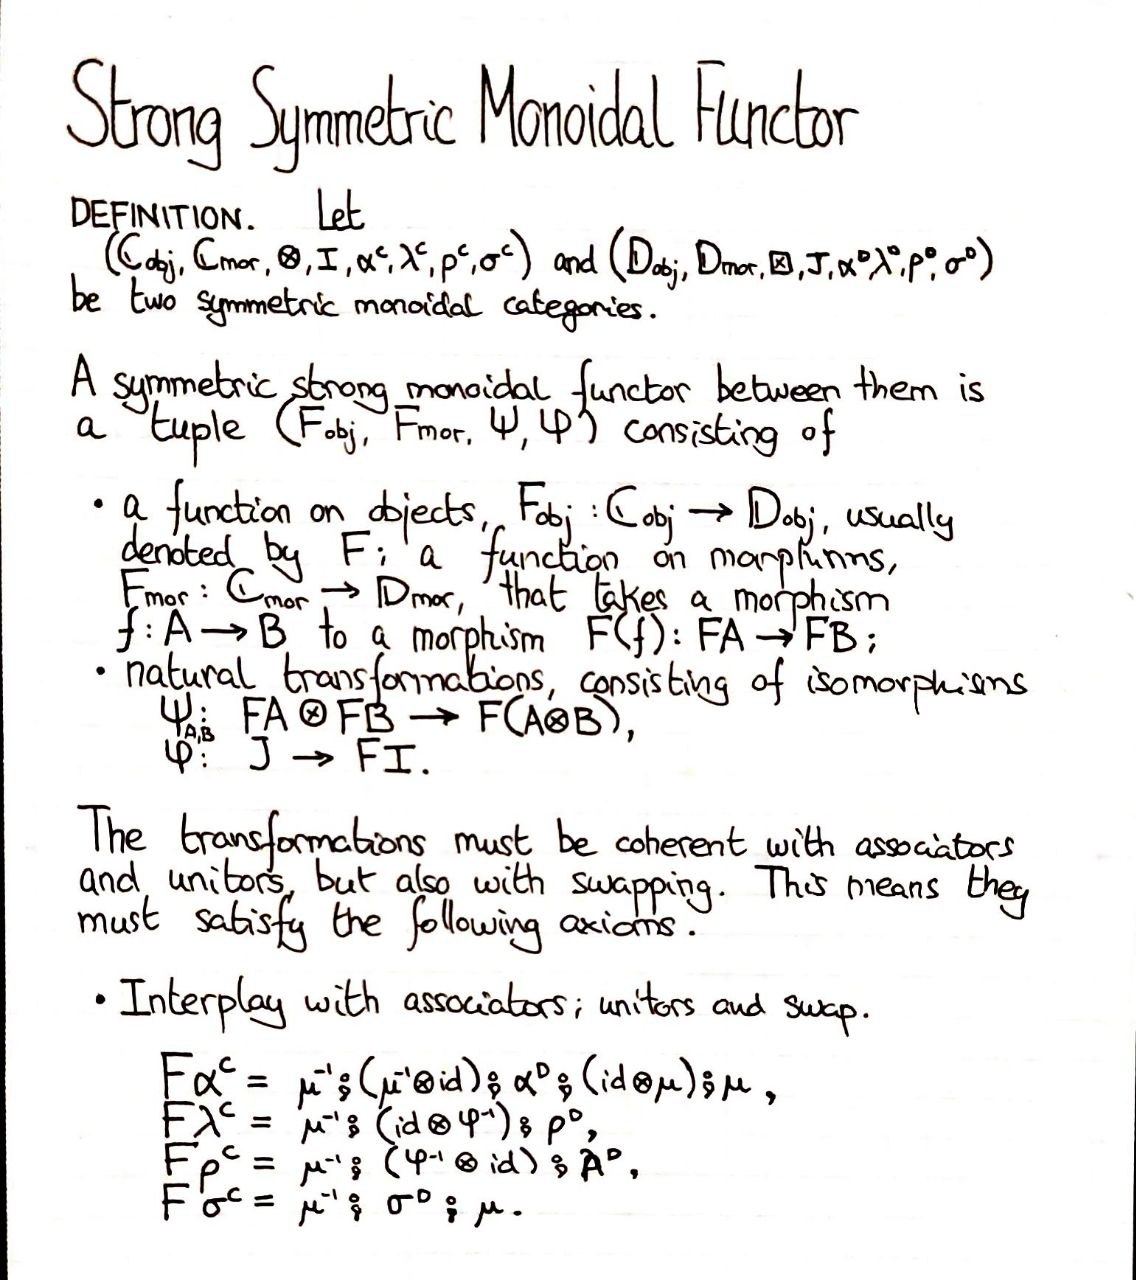 Strong Symmetric Monoidal Functor
DEFINITION. Let
(ℂobj, ℂmor, ⊗, I, αᶜ, λᶜ, ρᶜ, σᶜ) and (𝔻obj, 𝔻mor, ⊠, J, αᴰ, λᴰ, ρᴰ, σᴰ)
be two symmetric monoidal categories.
A symmetric strong monoidal functor between them is
a tuple (Fobj, Fmor, ψ, φ) consisting of
• a function on objects, Fobj : ℂobj → 𝔻obj, usually
denoted by F; a function on morphisms,
Fmor : ℂmor → 𝔻mor, that takes a morphism
f : A → B to a morphism F(f) : FA → FB;
• natural transformations, consisting of isomorphisms
ψA,B : FA ⊗ FB → F(A⊗B),
φ : J → FI.
The transformations must be coherent with associators
and unitors, but also with swapping. This means they
must satisfy the following axioms.
• Interplay with associators; unitors and swap.
Fαᶜ = μ⁻¹ ⨾ (μ⁻¹⊗id) ⨾ αᴰ ⨾ (id⊗μ) ⨾ μ,
Fλᶜ = μ⁻¹ ⨾ (id⊗φ⁻¹) ⨾ ρᴰ,
Fρᶜ = μ⁻¹ ⨾ (φ⁻¹⊗id) ⨾ λᴰ,
Fσᶜ = μ⁻¹ ⨾ σᴰ ⨾ μ.